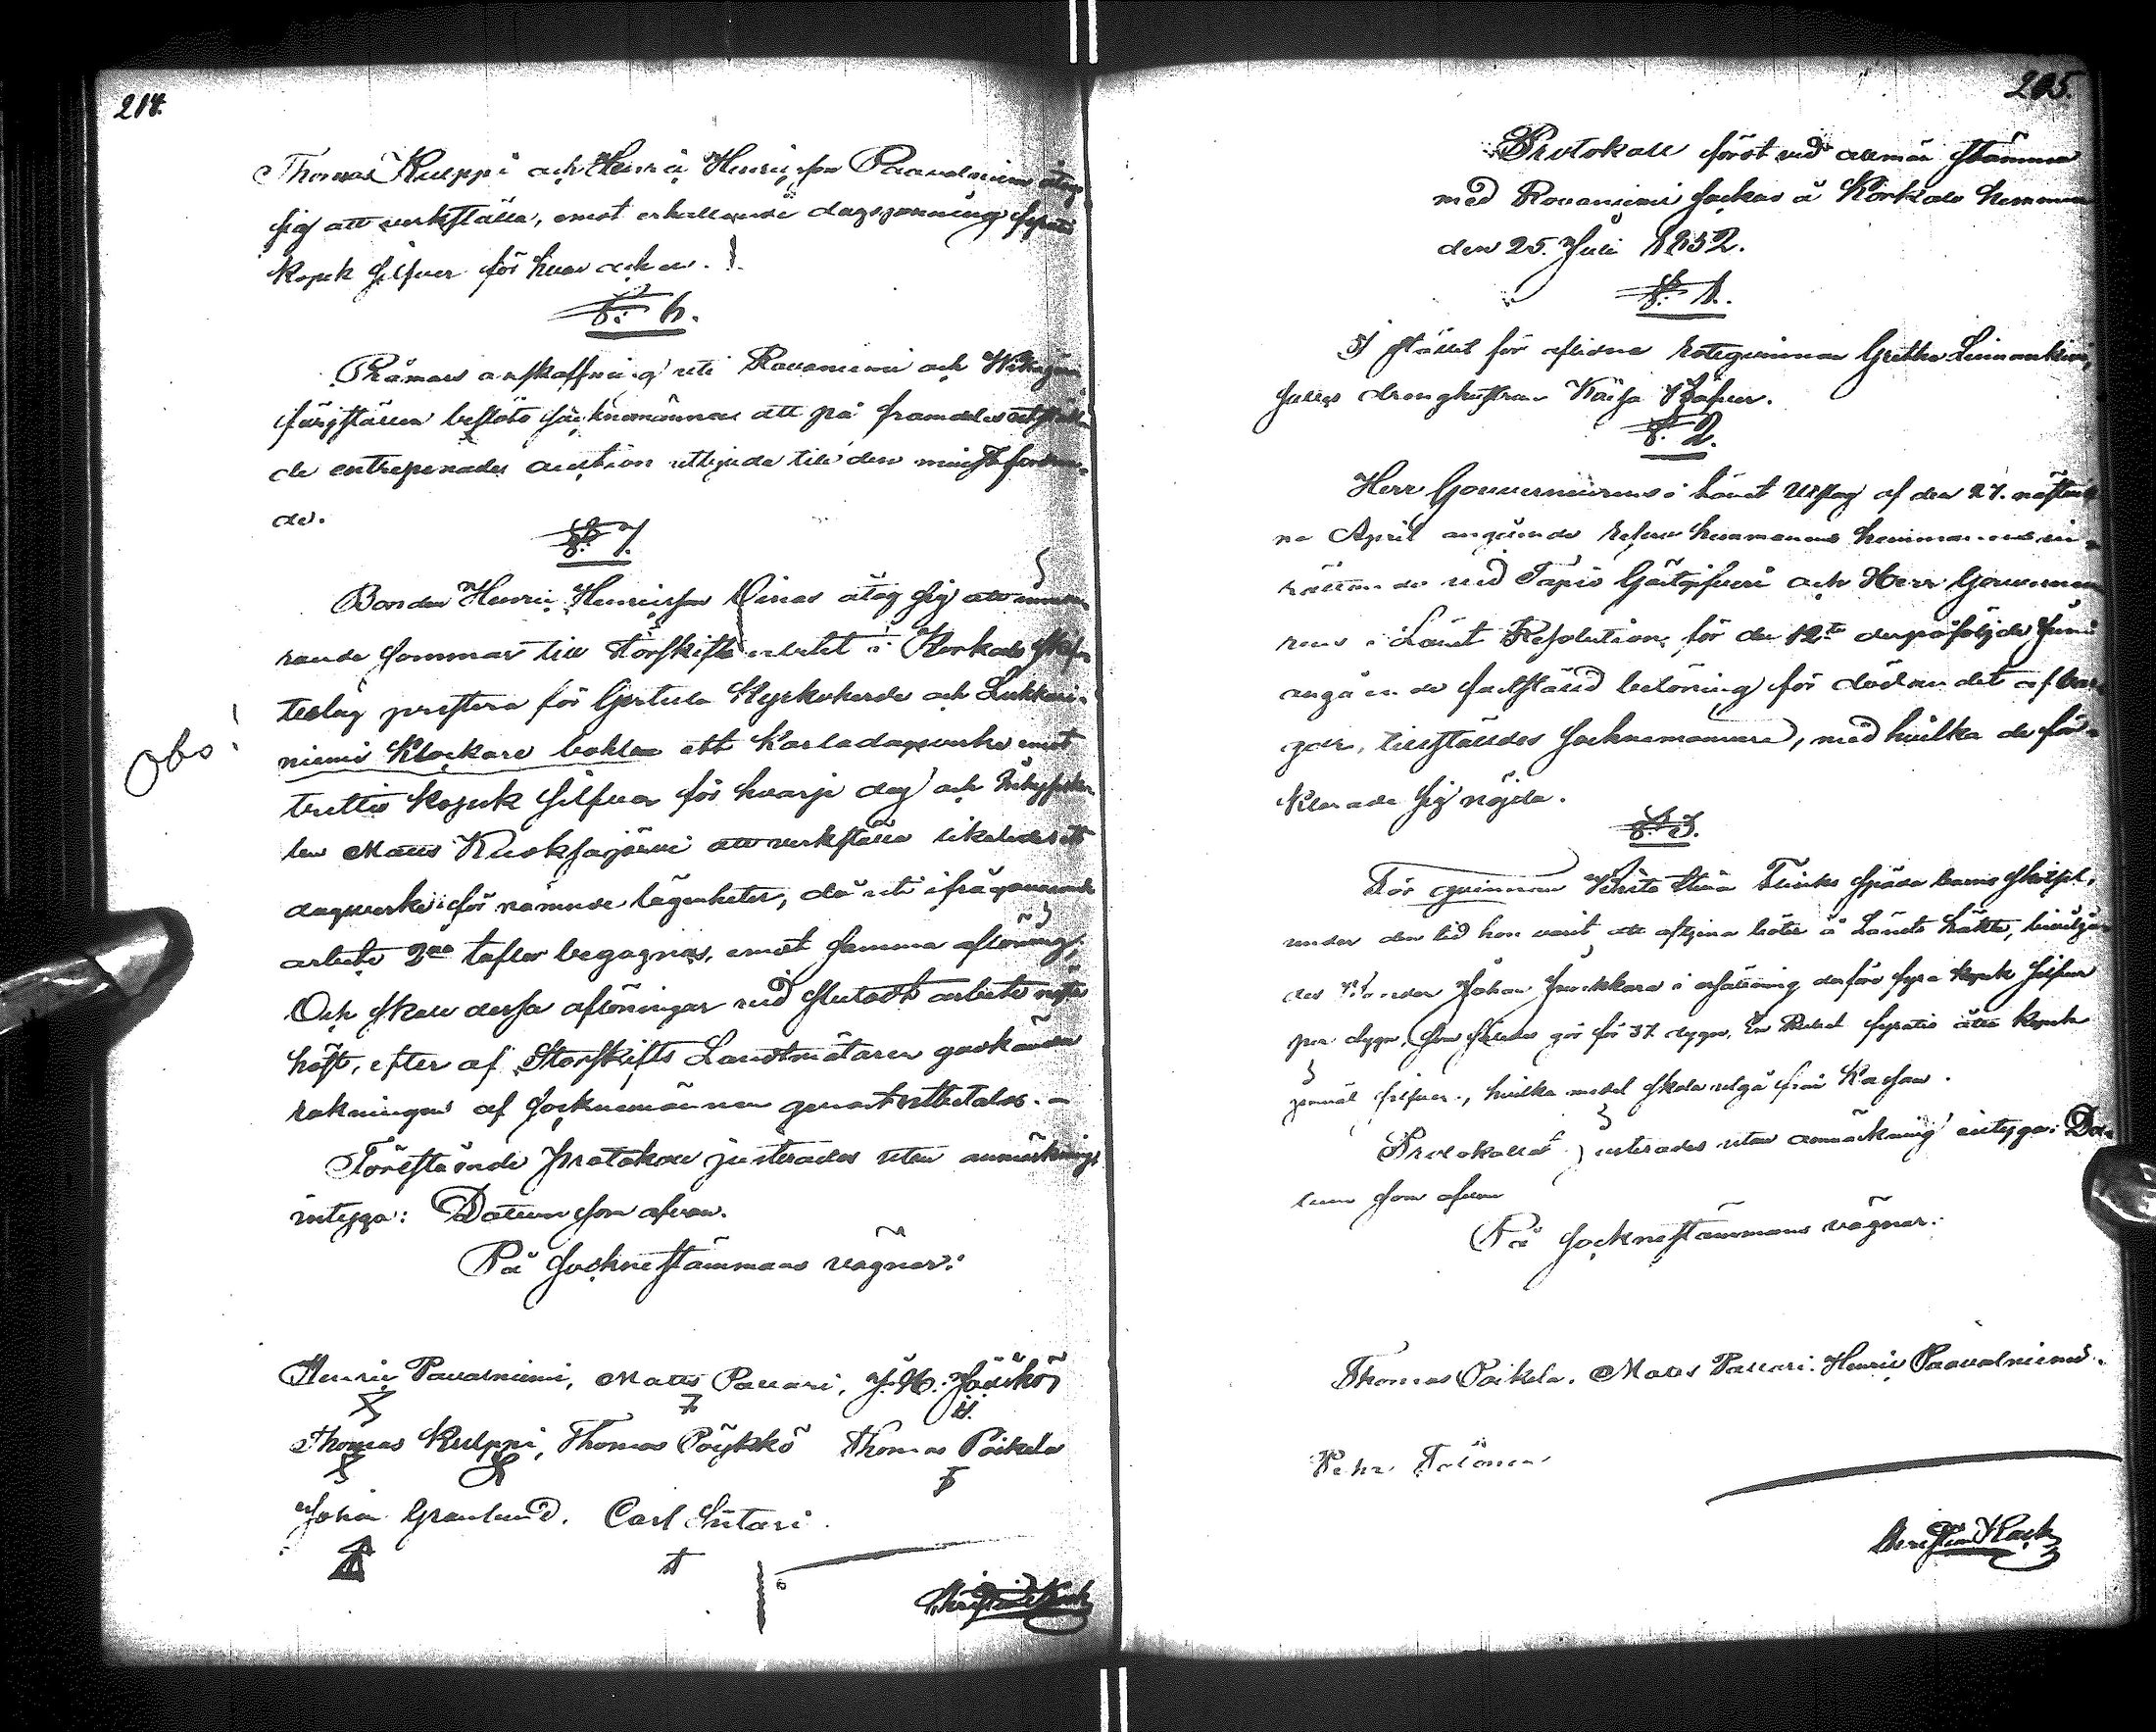 214.
Thomas Kulppi och Henric Henricsson Paavalniemi åtog
sig att verkställa, emot erhållande dagspenning fyratio
kopek silfver för hvar och en.
§. 6.
Pråmars anskaffning uti Rovaniemi och
färjställen beslöto socknemännen att på framdeles
de entreprenades auction utbjuda till den minstfordran-
de.
§. 7.
Bonden Henric Henricsson åtog sig att
rande sommar till Storskifts arbetet i Korkalo
telag prestera för Gertula Kyrkoherde och Lukkari-
niemi Klockare bohlen ett Karladagsverke emot
Obs!
trettio kopek silfver för hvarje dag och
ten Matts Kuoksajärvi att verkställa likaledes ett
dagsverke för nämnde lägenheter, då uti ifrågavarande
arbete 2ne taflor begagnas, emot samma aflöning;
Och skall dessa aflöningar vid slutadt arbete nästa
höst, efter af Storskifts Landtmätaren godkända
räkningar af socknemännen genast utbetalas.
Förestående protokoll justerades utan anmärkning,
intyga: Datum som ofvan.
På Sockne stämmans vägnar:
Henric Paavalniemi, Matts Pallari, J. H. Jääskö
Thomas Kulppi, Thomas Pöykkö Thomas Poikela
Johan Granlund. Carl Sutari.
205.
Protokoll fördt vid allmän stämma
med Rovaniemi Socken å Korkalo hemman
den 25. Juli 1852.
§. 1.
I stället för aflidna rotegvinnan Gretha
drenghustrun Kaisa
§. 2.
Herr Gouverneurens i Länet Utslag af den 27. nästvik-
ne April angående hemmanens
rättande vid Tapio Gästgifveri och Herr Gouverneu-
rens i Länet Resolution för den 12te derpåföljde Juni
angående belöning för dödandet af
tillstäldes Socknemännen, med hvilka de för-
klarade sig nöjda.
§. 3.
För qvinnan Stina späda barns skötsel,
under den tid hon varit att aftjena böter å Länets häkte,
des Bonden Johan i ersättning derföre fyra kopek silfver
per dygn, som gör för 37 dygn, En Rubel fyratio åtta kopek
silfver, hvilka medel skola utgå från Kassan.
Protokollet justerades utan anmärkning intyga: Da-
tum som ofvan
På Sockne stämmans vägnar:
Thomas Poikela. Matts Pallari. Henric Paavalniemi.
Pehr Tolonen